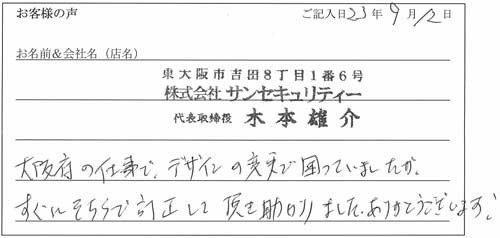 お客様の声
ご記入日23年9月12日
お名前&会社名（店名）
東大阪市吉田8丁目1番6号
株式会社 サンセキュリティー
代表取締役 木本雄介
大阪府の仕事で、デザインの変更で困っていましたが、
すぐにそちらで訂正して頂き助かりました。ありがとうございます!